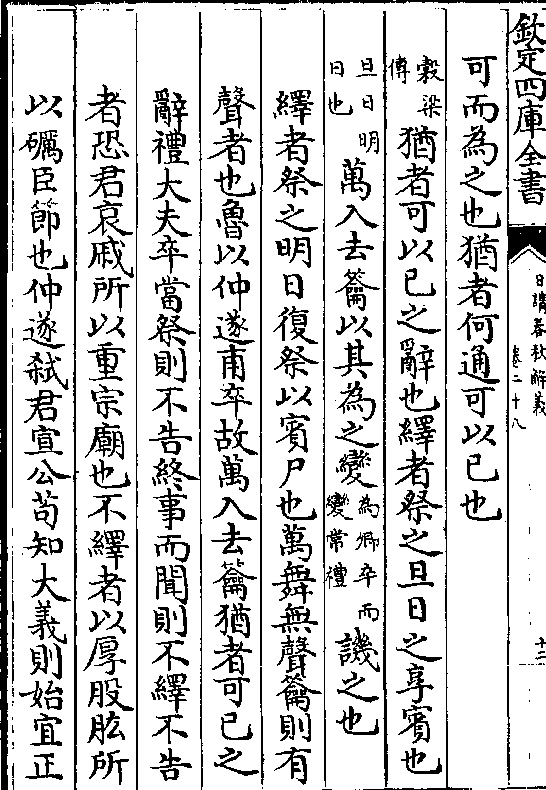 欽定四庫全書
日講春秋解義
卷二十八
十二
可而為之也猶者何通可以已也
穀梁傳猶者可以已之辭也繹者祭之旦日之享賓也
旦日明日也萬入去籥以其為之變為卿卒而變常禮譏之也
繹者祭之明日復祭以賓尸也萬舞無聲籥則有
聲者也魯以仲遂甫卒故萬入去籥猶者可已之
辭禮大夫卒當祭則不告終事而聞則不繹不告
者恐君哀戚所以重宗廟也不繹者以厚股肱所
以礪臣節也仲遂弑君宣公苟知大義則始宜正